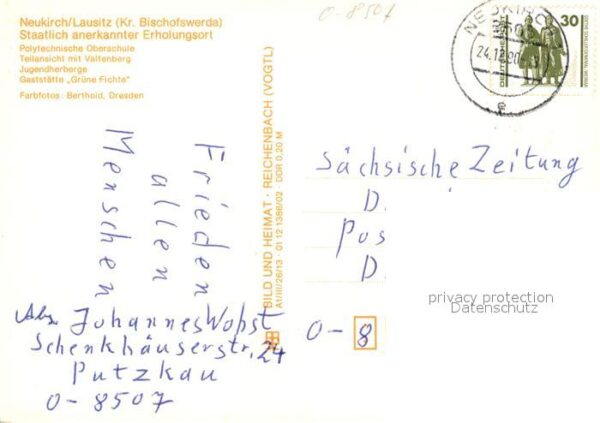 Neukirch/Lausitz (Kr. Bischofswerda)
Staatlich anerkannter Erholungsort
Polytechnische Oberschule
Teilansicht mit Valtenberg
Jugendherberge
Gaststätte „Grüne Fichte"
Farbfotos: Berthold, Dresden
O-8507
24.12.90
30
DEUTSCHE POST
Frieden
allen
Menschen
BILD UND HEIMAT · REICHENBACH (VOGTL)
A1/III/26/13 01 12 1386/02 DDR 0,20 M
Sächsische Zeitung
D.
Pos
D.
O-8
privacy protection
Datenschutz
Abs. Johannes Wobst
Schenkhäuserstr. 24
Putzkau
O-8507